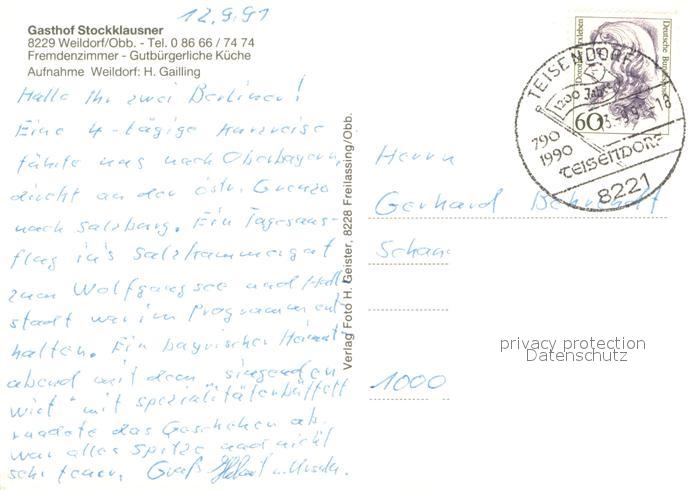 12.9.91
Gasthof Stockklausner
8229 Weildorf/Obb. - Tel. 0 86 66 / 74 74
Fremdenzimmer - Gutbürgerliche Küche
Aufnahme Weildorf: H. Gailling
Hallo Ihr zwei Berliner!
Eine 4-tägige Kurzreise
führte uns nach Oberbayern,
direkt an der östr. Grenze
nach Salzburg. Ein Tagesaus-
flug in's Salzkammergut
zum Wolfgangsee und Hall-
stadt war im Programm ent-
halten. Ein bayrischer Heimat-
abend mit dem "singenden
Wirt" mit Spezialitätenbüffett
rundete das Geschehen ab.
War alles Spitze und nicht
sehr teuer. Gruß u. Ursula.
Verlag Foto H. Geister, 8228 Freilassing/Obb.
Deutsche Bundespost
60
TEISENDORF
1200 Jahre
790
1990
TEISENDORF
8221
Herrn
Gerhard
1000
privacy protection
Datenschutz